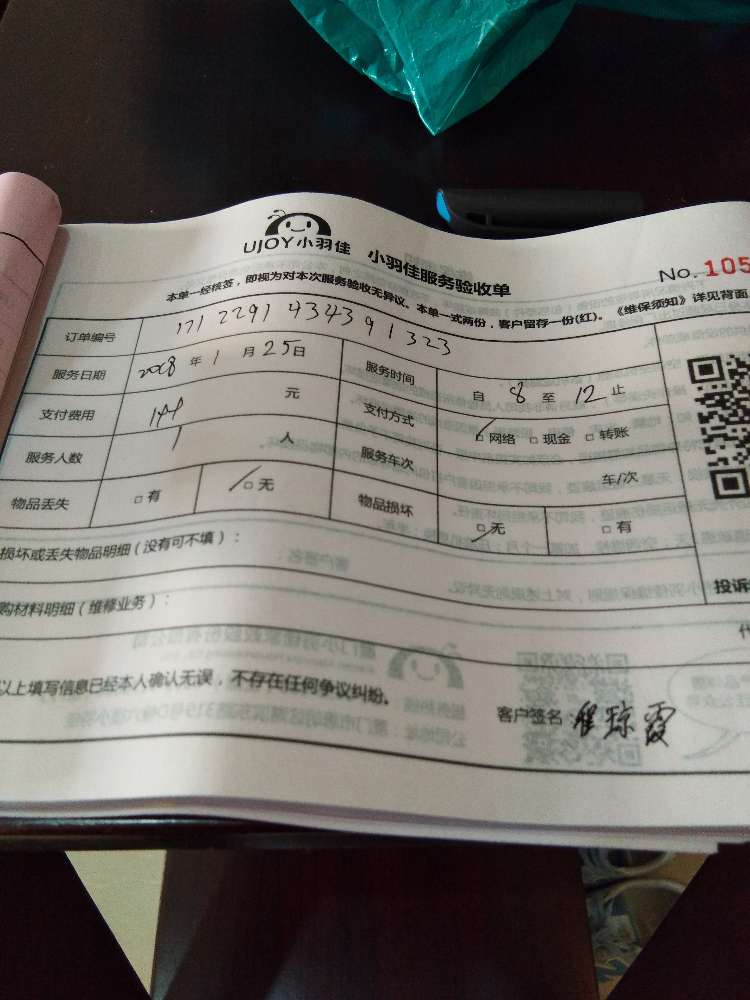 UJOY小羽佳 小羽佳服务验收单
No. 105
本单一经核签，即视为对本次服务验收无异议。本单一式两份，客户留存一份(红)。《维保须知》详见背面
订单编号 1712291434391323
服务日期 2008 年 1 月 25 日 服务时间 自 8 至 12 止
支付费用 144 元 支付方式 网络 现金 转账
服务人数 1 人 服务车次 车/次
物品丢失 有 无 物品损坏 无 有
损坏或丢失物品明细（没有可不填）：
购材料明细（维修业务）：
投诉
以上填写信息已经本人确认无误，不存在任何争议纠纷。
客户签名